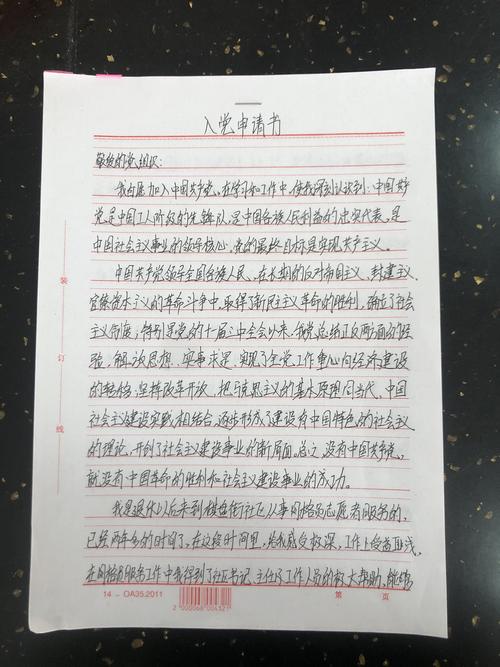 入党申请书
敬爱的党组织：
我自愿加入中国共产党，在学习和工作中，使我深刻认识到：中国共产
党是中国工人阶级的先锋队，是中国各族人民利益的忠实代表，是
中国社会主义事业的领导核心，党的最终目标是实现共产主义。
中国共产党领导全国各族人民，在长期的反对帝国主义、封建主义、
官僚资本主义的革命斗争中，取得了新民主主义革命的胜利，确立了社会
主义制度；特别是党的十一届三中全会以来，我党总结正反两方面的经
验，解放思想，实事求是，实现了全党工作重心向经济建设
的转移，坚持改革开放，把马克思主义的基本原理同当代中国
社会主义建设实践相结合，逐步形成了建设有中国特色的社会主义
的理论，开创了社会主义建设事业的新局面。总之，没有中国共产党，
就没有中国革命的胜利和社会主义建设事业的成功。
我是退休以后来到棋盘街社区从事网格员志愿者服务的，
已经两年多的时间了，在这段时间里，给我感受极深，工作上受益
在网格员服务工作中我得到了社区书记、主任及工作人员的极大帮助，
装
订
线
14－OA35.2011
2 000068 004321
第 页